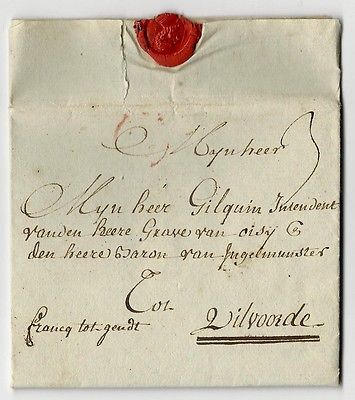 Mynheer 3
Mynheer Gilquin Intendent
vanden heere Grave van oisy &
den heere Baron van Ingelmunster
Tot
francq tot gendt Vilvoorde